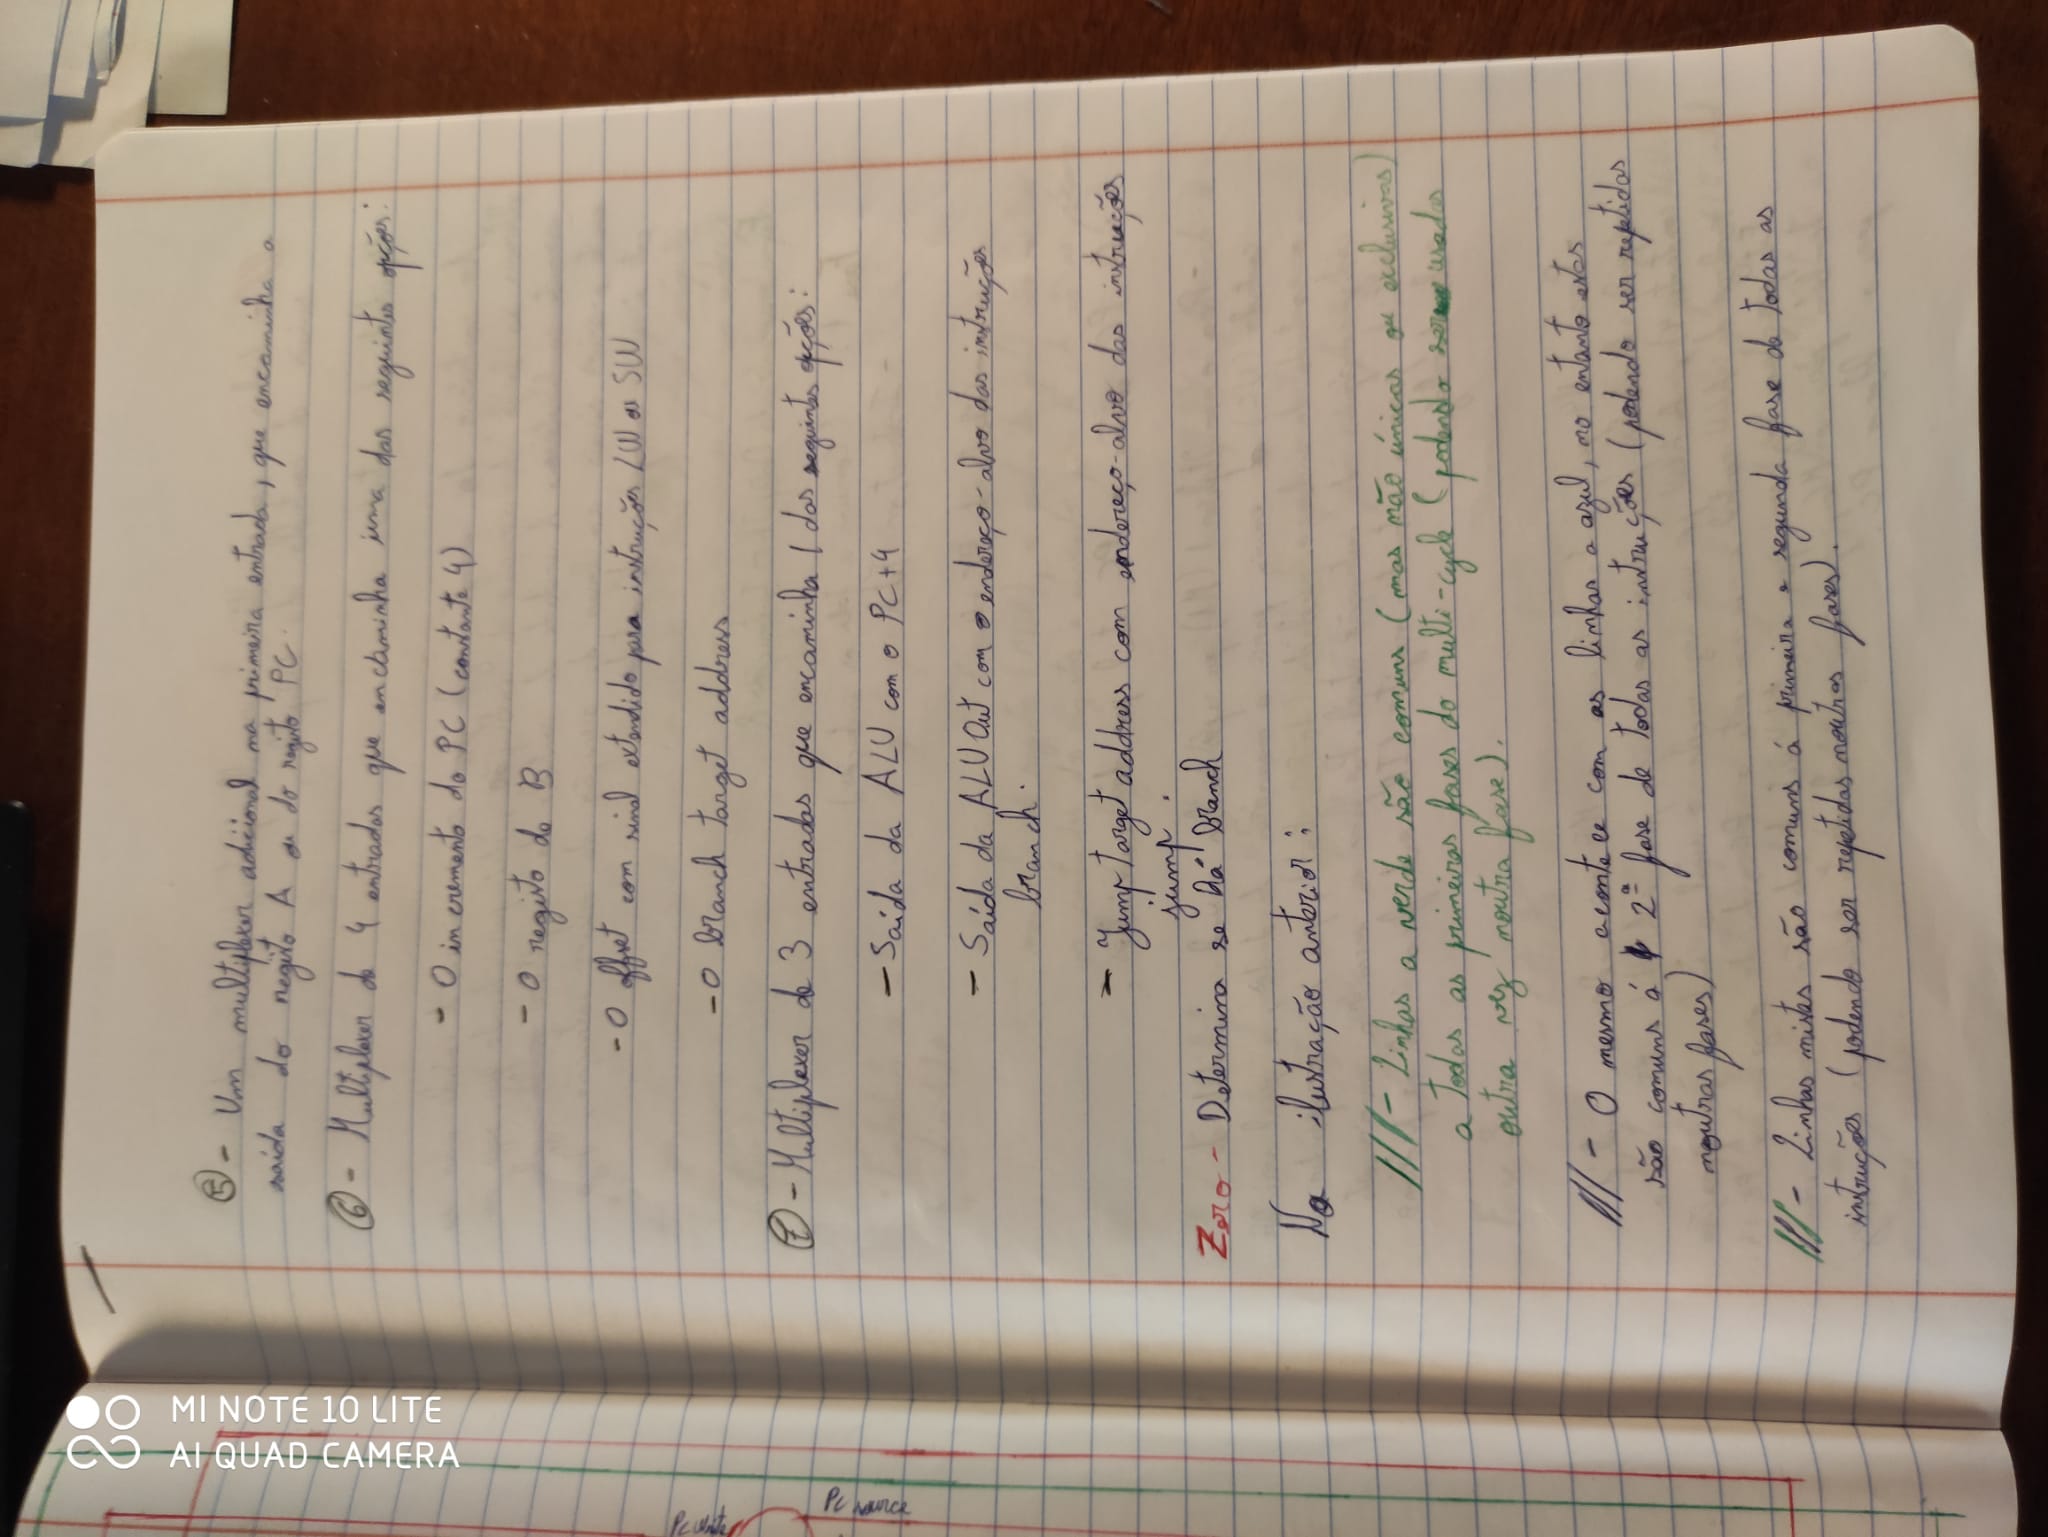 ⑤- Um multiplexer adicional na primeira entrada, que encaminha a
saída do registo A ou do registo PC.
⑥- Multiplexer de 4 entradas que encaminha uma das seguintes opções:
- O incremento do PC (constante 4)
- O registo do B
- O offset com sinal extendido para instruções LW ou SW
- O branch target address
⑦- Multiplexer de 3 entradas que encaminha 1 das seguintes opções:
- Saída da ALU com o PC+4
- Saída da ALUOut com o endereço-alvo das instruções
branch.
- Jump Target address com endereço-alvo das instruções
jump.
Zero- Determina se há branch
Na ilustração anterior:
///- Linhas a verde são comuns (mas não únicas ou exclusivas)
a todas as primeiras fases do multi-cycle (podendo ser usadas
outra vez noutra fase).
///- O mesmo acontece com as linhas a azul, no entanto estas
são comuns á 2ª fase de todas as instruções (podendo ser repetidas
noutras fases)
///- Linhas mistas são comuns á primeira e segunda fase de todas as
instruções (podendo ser repetidas noutras fases).
PCWrite
PC source
MI NOTE 10 LITE
AI QUAD CAMERA